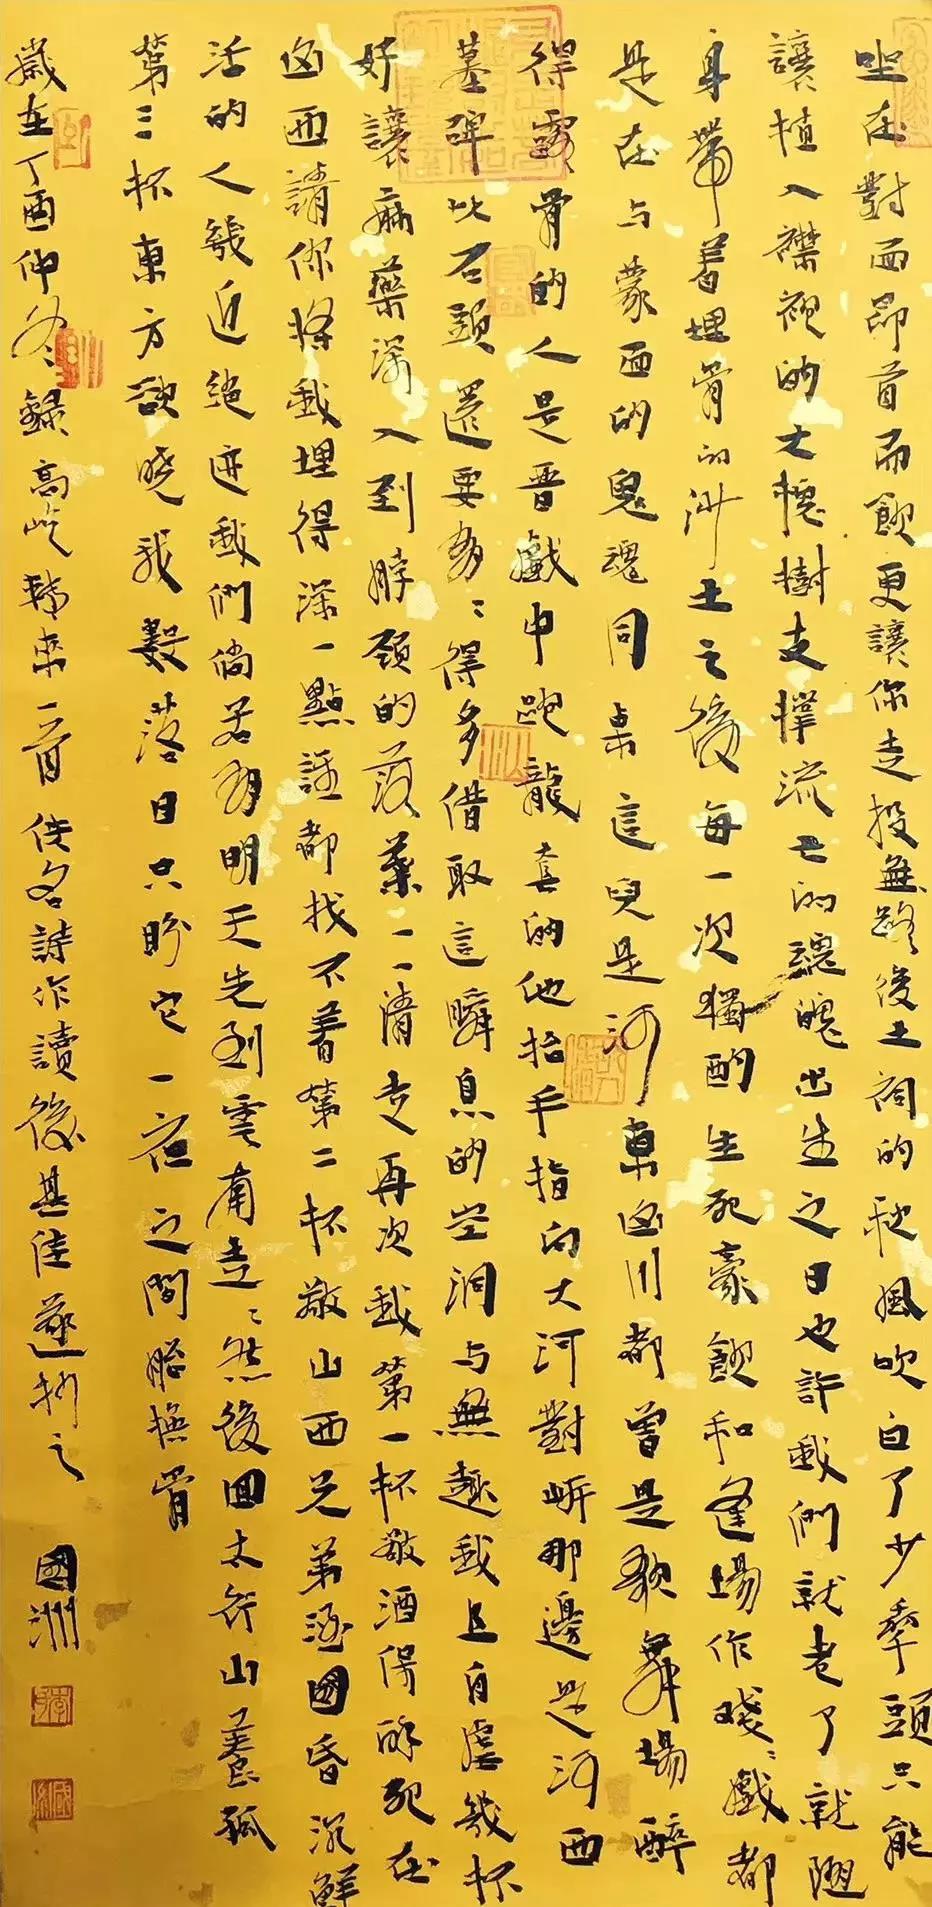 坐在對面昂首而飲更讓你走投無路後土祠的秋風吹白了少年頭只能
讓植入襟袍的大槐樹支撐流亡的魂魄出生之日也許我們就老了就隨
身帶著埋骨的淨土之後每一次獨酌生死豪飲和逢場作戲戲都
是在與蒙面的鬼魂同桌這兒是河東四川都曾是歌舞場醉
得露骨的人是晉戲中跑龍套的他抬手指向大河對岍那邊是河西
墓碑比石頭還要多多得多借取這瞬息的空洞與無趣我且自虐幾杯
好讓麻藥深入到脖頸的落葉一一清走再次我第一杯敬酒得醉死在
西請你將我埋得深一點誰都找不著第二杯敬山西兄弟涵國昏
活的人幾近絕迹我們倘若有明天先到雲南走走然後回太行山養孤
第三杯東方欲曉我數落日只盼它一夜之間能換骨
歲在丁酉仲冬錄高屹轉來一首佚名詩作讀後甚佳遂抄之
國洲